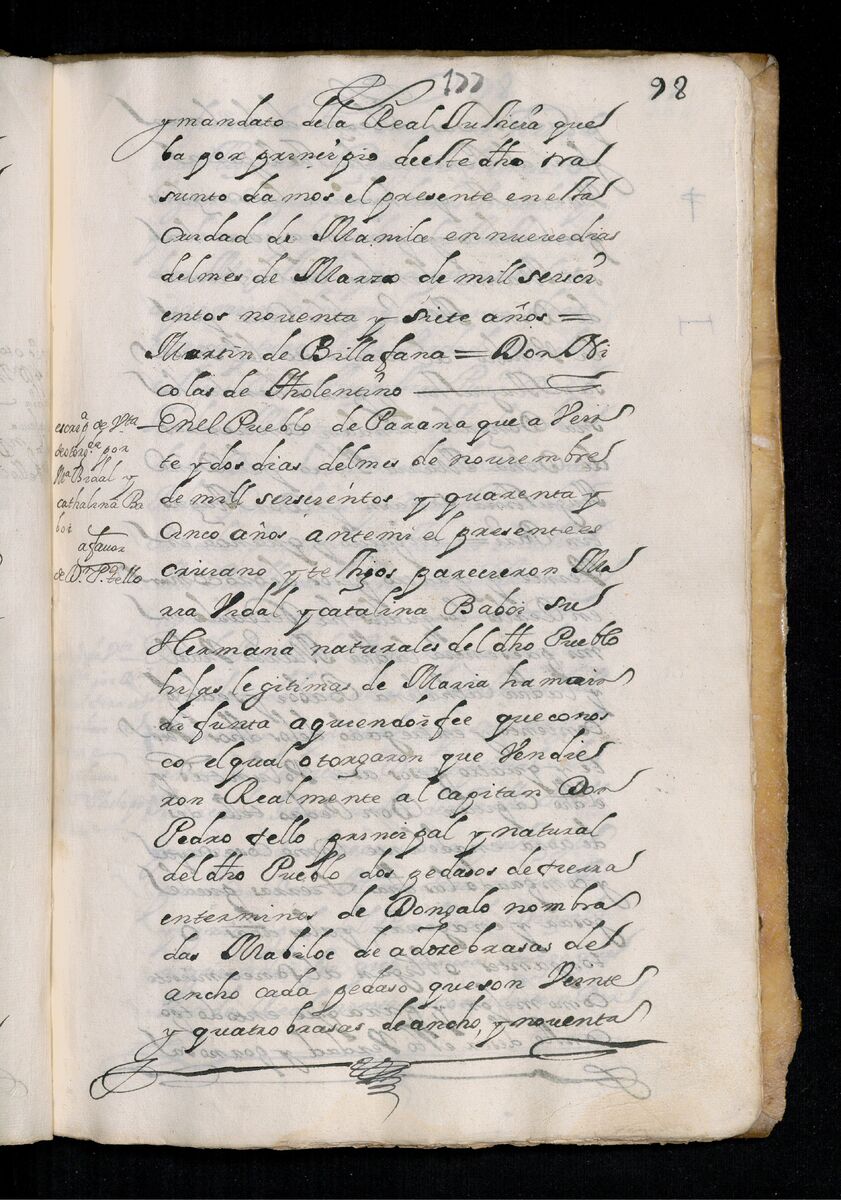 177
98
y mandato de la Real Justicia que
ba por prinçipio deeste dho tra
sunto damos el presente en esta
Ciudad de Manila en nueve dias
del mes de Marzo de mill seisci
entos noventa y siete años =
Martin de Billafana = Don Ni
colas de tholentino
escrip.ª de Vta
de otorg.da por
M.ª Bidal y
cathalina Ba
bot
a favor
de D.n P.º tello
En el Pueblo de Parañaque a Vein
te y dos dias del mes de noviembre
de mill seiscientos y quarenta y
Cinco años ante mi el presente es
crivano y testigos parecieron Ma
ria Vidal y catalina Baboi su
Hermana naturales del dho Pueblo
hijas legitimas de Maria hamain
difunta a quien doi fee que conos
co, el qual otorgaron que Vendie
ron Realmente al capitan Don
Pedro tello principal y natural
del dho Pueblo dos pedasos de tierra
en terminos de Dongalo nombra
das Mabiloc de a dose brasas de
ancho cada pedaso que son Veinte
y quatro brasas de ancho, y noventa